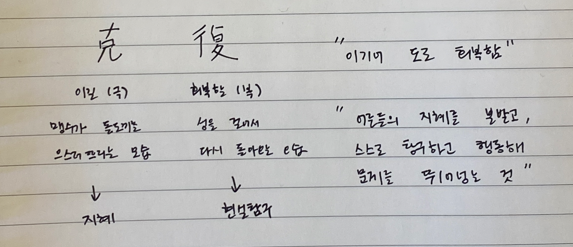 克 復
이길 (극) 회복할 (복)
"이기어 도로 회복함"
맹수가 돌도끼를 성을 걸어서
으스러뜨리는 모습 다시 돌아오는 모습
↓ ↓
지혜 현실탐구
"어른들의 지혜를 본받고,
스스로 탐구하고 행동해
문제를 뛰어넘는 것"